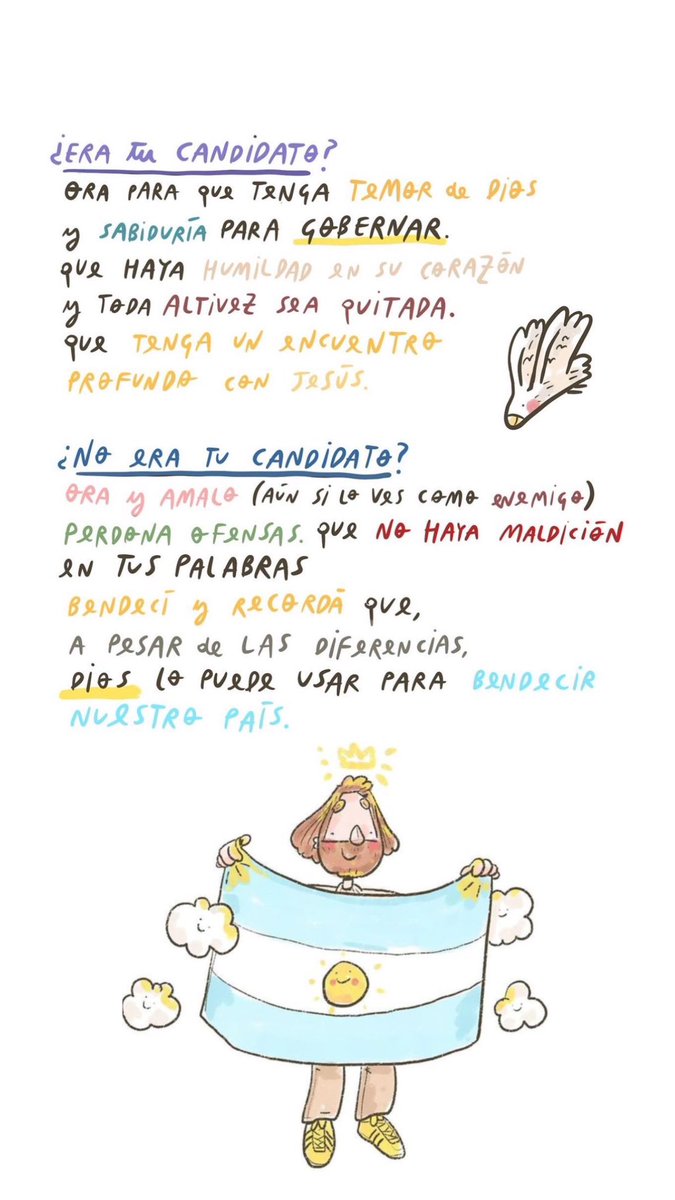 ¿ERA tu CANDIDATO?
ORA PARA que TENGA TEMOR de DIOS
y SABIDURÍA PARA GOBERNAR.
que HAYA HUMILDAD en su CORAZÓN
y TODA ALTIVEZ SEA QUITADA.
que TENGA UN ENCUENTRO
PROFUNDO CON JESÚS.
¿NO ERA TU CANDIDATO?
ORA y AMALO (AÚN SI LO VES COMO ENEMIGO)
PERDONA OFENSAS. que NO HAYA MALDICIÓN
en TUS PALABRAS
BENDECÍ y RECORDÁ que,
A PESAR de LAS DIFERENCIAS,
DIOS LO PUEDE USAR PARA BENDECIR
NUESTRO PAÍS.